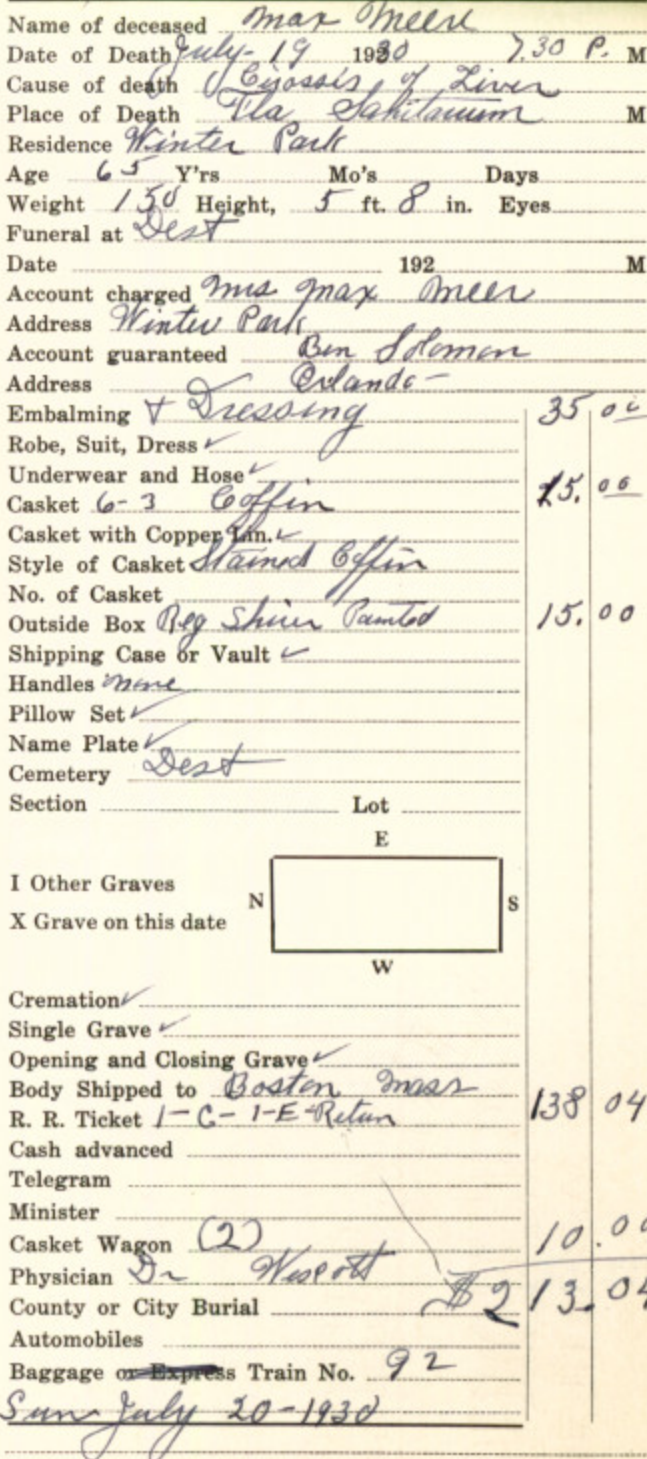 Name of deceased Max Meer
Date of Death July - 19 1930 7.30 P. M
Cause of death Cirossis of Liver
Place of Death Fla Sanitarium M
Residence Winter Park
Age 65 Y'rs Mo's Days
Weight 150 Height, 5 ft. 8 in. Eyes
Funeral at Dest
Date 192 M
Account charged Mrs Max Meer
Address Winter Park
Account guaranteed Ben Solomon
Address Orlando -
Embalming + Dressing 35 00
Robe, Suit, Dress ✓
Underwear and Hose ✓
Casket 6-3 Coffin 15.00
Casket with Copper Lin. ✓
Style of Casket Stained Coffin
No. of Casket
Outside Box Reg Painted 15.00
Shipping Case or Vault ✓
Handles none
Pillow Set ✓
Name Plate ✓
Cemetery Dest
Section Lot
E
I Other Graves
N S
X Grave on this date
W
Cremation ✓
Single Grave ✓
Opening and Closing Grave ✓
Body Shipped to Boston Mass
R. R. Ticket 1-C-1-E-Return 138 04
Cash advanced
Telegram
Minister
Casket Wagon (2) 10.00
Physician Dr Wescott
County or City Burial $213.04
Automobiles
Baggage or Express Train No. 92
Sun July 20-1930